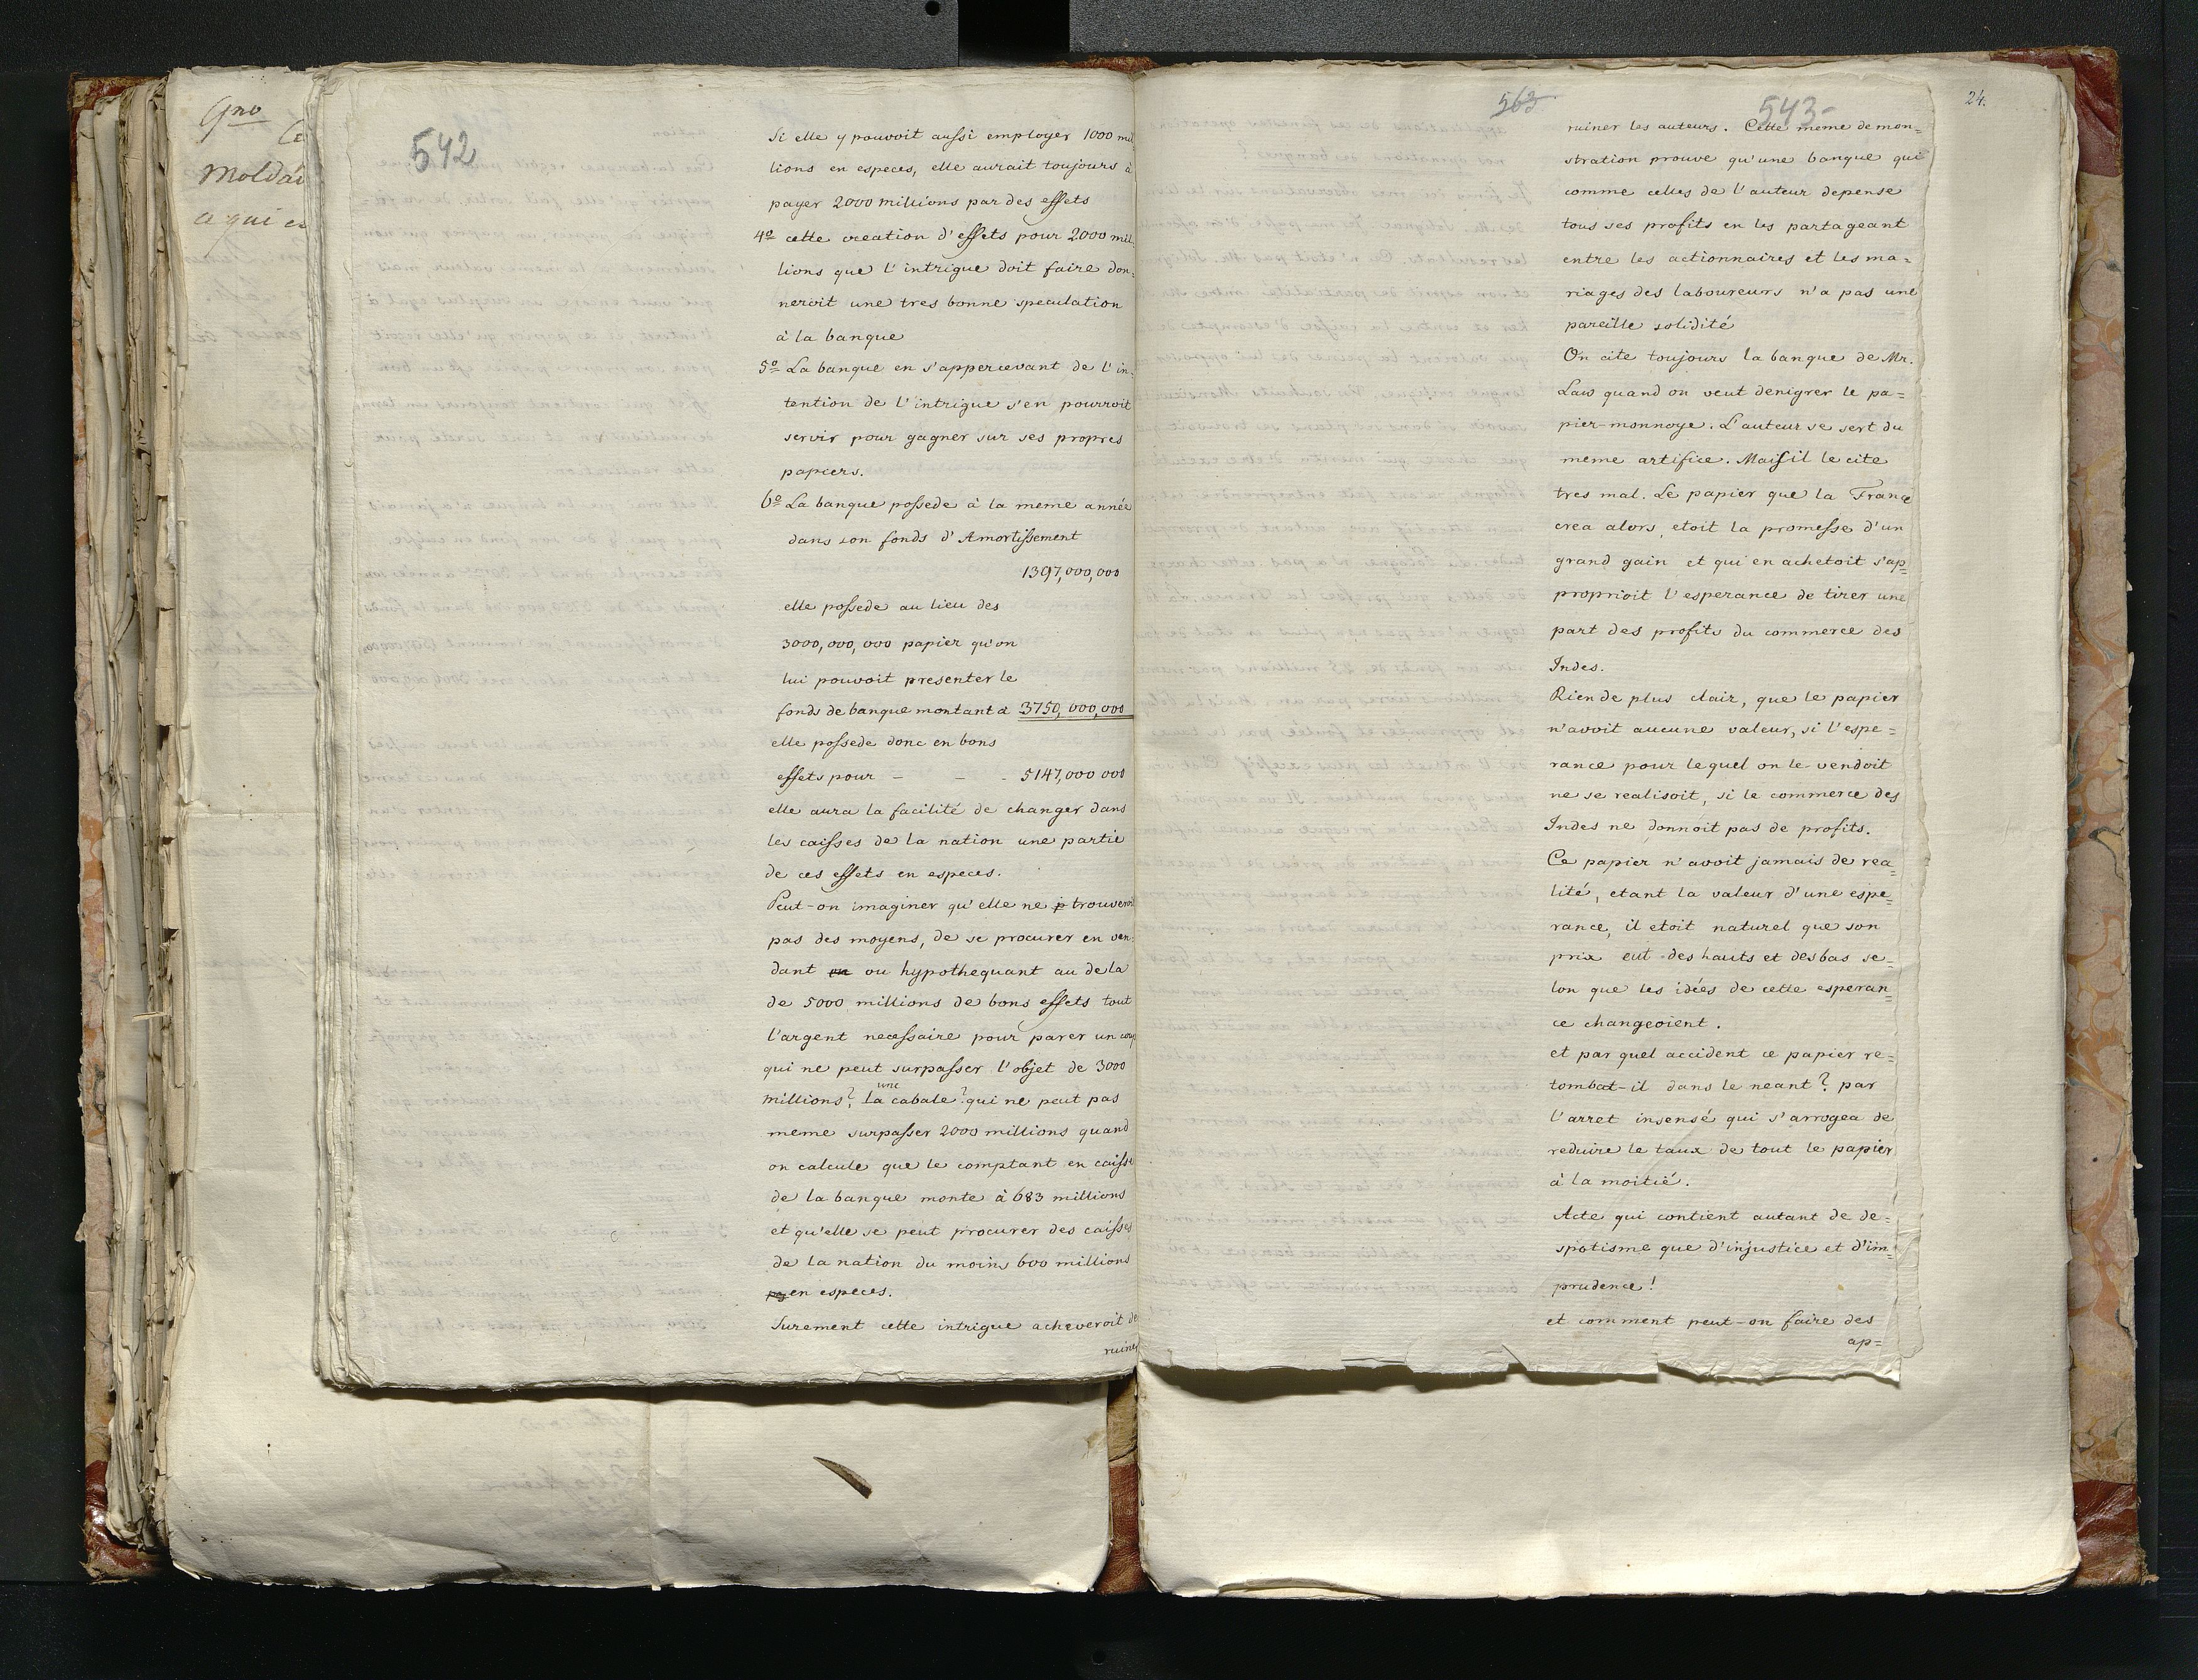 542
Si elle y pouvoit aussi employer 1000 mil
lions en especes, elle aurait toujours à
payer 2000 millions par des effets
4º cette creation d'effets pour 2000 mil
lions que l'intrigue doit faire don=
neroit une tres bonne speculation
à la banque
5º La banque en s'appercevant de l'in=
tention de l'intrigue s'en pourroit
servir pour gagner sur ses propres
papiers.
6º La banque possede à la meme année
dans son fonds d'Amortissement
1397,000,000
elle possede au lieu des
3000,000,000 papier qu'on
lui pouvoit presenter le
fonds de banque montant à 3750,000,000
elle possede donc en bons
effets pour - - - 5147,000 000
elle aura la facilité de changer dans
les caisses de la nation une partie
de ces effets en especes.
Peut-on imaginer qu'elle ne p trouveroit
pas des moyens, de se procurer en ven=
dant en ou hypothequant au dela
de 5000 millions de bons effets tout
l'argent necessaire pour parer un coup
qui ne peut surpasser l'objet de 3000
une
millions?, la cabale? qui ne peut pas
meme surpasser 2000 millions quand
on calcule que le comptant en caisse
de la banque monte à 683 millions
et qu'elle se peut procurer des caisses
de la nation du moins 600 millions
en especes.
Surement cette intrigue acheveroit de
ruiner
563
543-
24.
ruiner les auteurs. Cette meme demon=
stration prouve qu'une banque qui
comme celles de l'auteur depense
tous ses profits en les partageant
entre les actionnaires et les ma=
riages des laboureurs n'a pas une
pareille solidité
On cite toujours la banque de Mr.
Law quand on veut denigrer le pa=
pier-monnoye. L'auteur se sert du
meme artifice. Mais il le cite
tres mal. Le papier que la France
crea alors, etoit la promesse d'un
grand gain et qui en achetoit s'ap=
proprioit l'esperance de tirer une
part des profits du commerce des
Indes.
Rien de plus clair, que le papier
n'avoit aucune valeur, si l'espe=
rance pour lequel on le vendoit
ne se realisoit, si le commerce des
Indes ne donnoit pas de profits.
Ce papier n'avoit jamais de rea=
lité, etant la valeur d'une espe=
rance, il etoit naturel que son
prix eut des hauts et des bas se=
lon que les idées de cette esperan=
ce changeoient.
et par quel accident ce papier re=
tombat-il dans le neant? par
l'arret insensé qui s'arrogea de
reduire le taux de tout le papier
à la moitié.
Acte qui contient autant de de=
spotisme que d'injustice et d'im=
prudence!
et comment peut-on faire des
ap=
Moldav
ce qui es